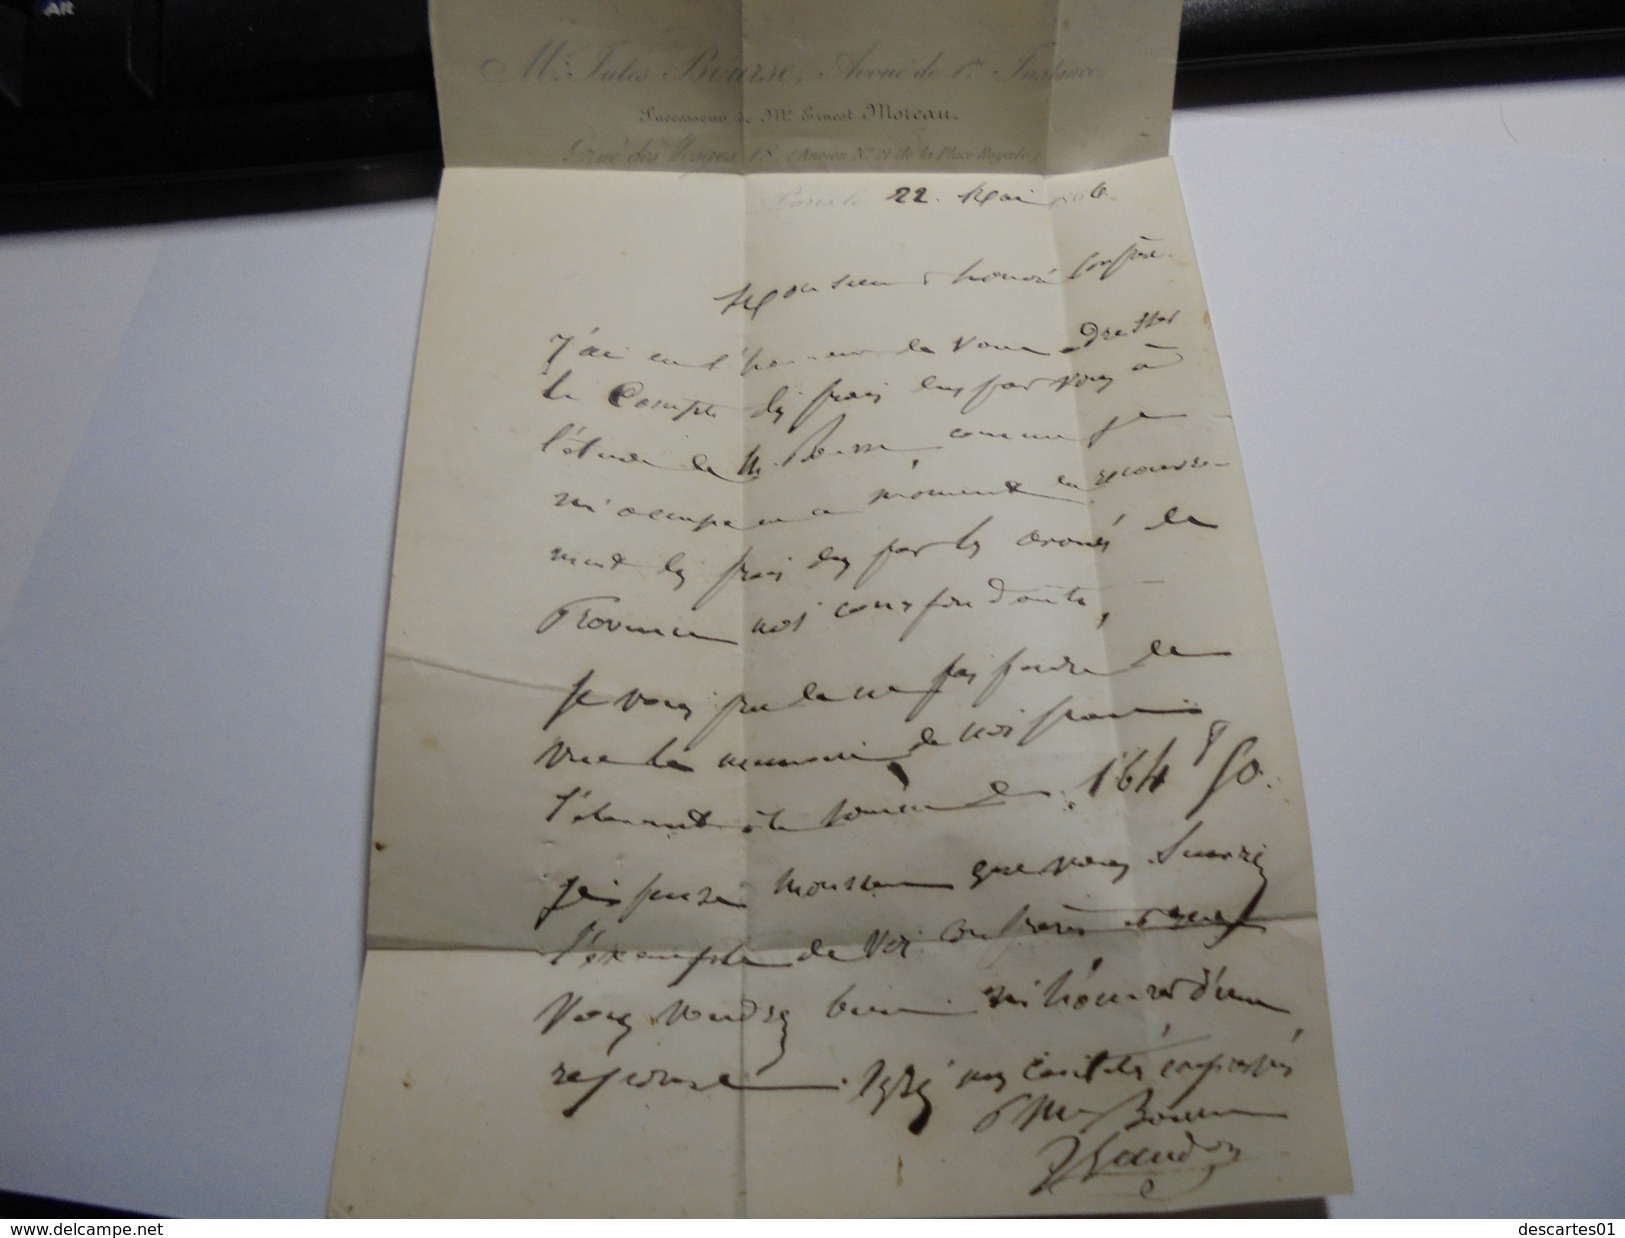 AR
Mr. Jules Bourse, Avoué de 1re Instance,
Successeur de Me Ernest Moreau,
des Vosges, 18. (Ancien No 21 de la Place Royale)
Paris le 22 Mai
Monsieur & honoré Confrère
J'ai eu l'honneur de vous adresser
le Compte des frais dus par vous à
l'étude de M. Bourse, comme je
m'occupe en ce moment du recouvre-
ment des frais dus par les avoués de
Province nos correspondants,
Je vous prie de ne pas perdre de
vue le mémoire de nos frais
s'élevant à la somme de 164 f 50.
J'espère Monsieur que vous suivrez
l'exemple de vos confrères & que
vous voudrez bien m'honorer d'une
réponse. Agréez mes civilités empressées
P. Me Bourse
www.delcampe.net
descartes01